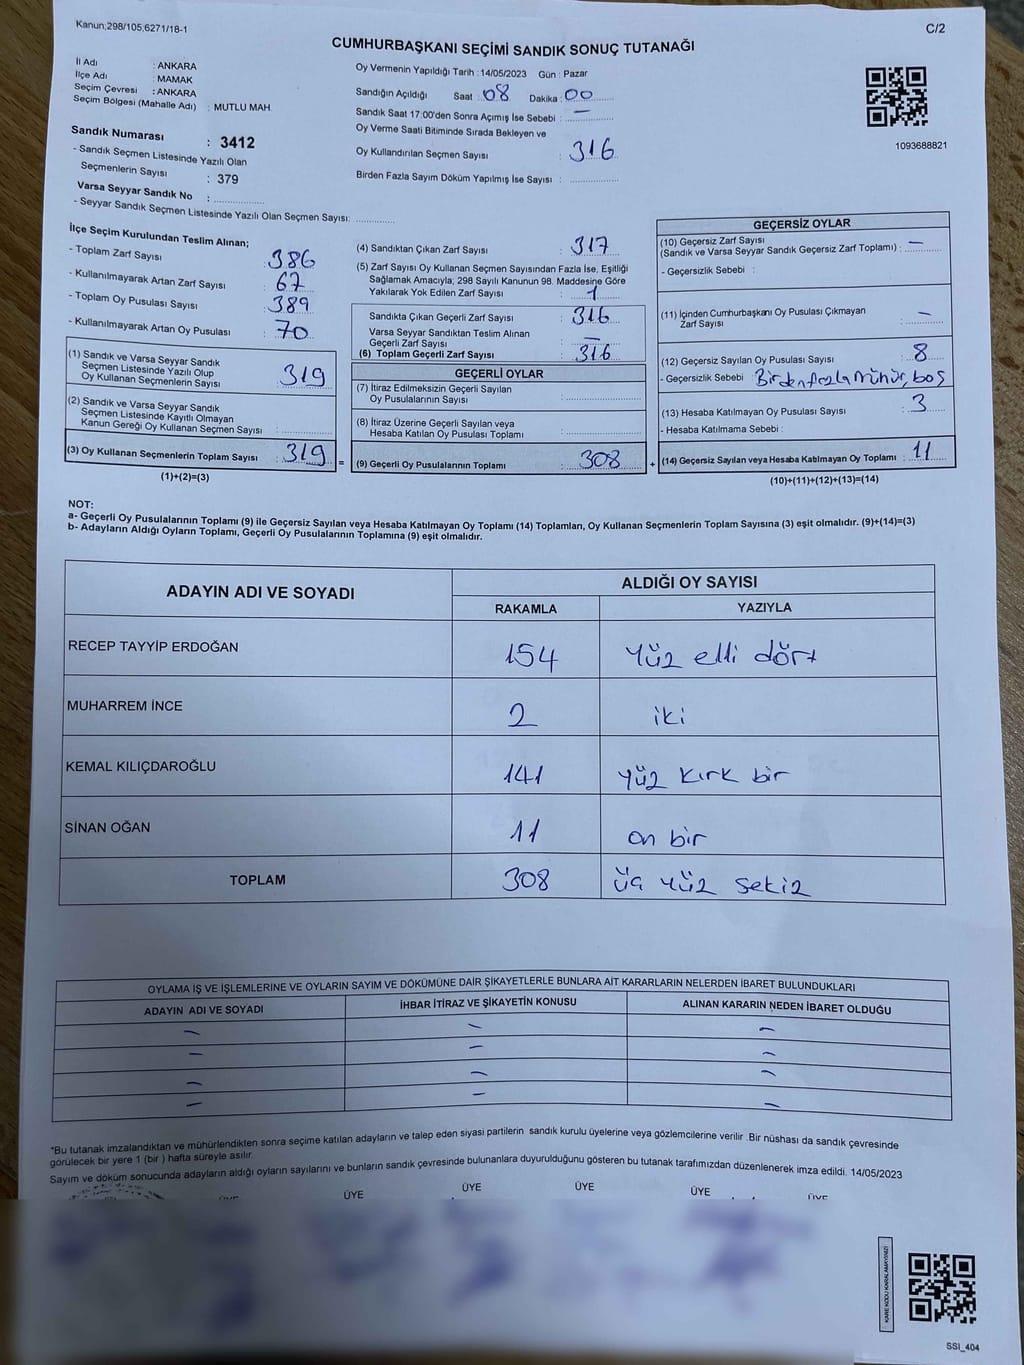 Kanun;298/105,6271/18-1
C/2
CUMHURBAŞKANI SEÇİMİ SANDIK SONUÇ TUTANAĞI
İl Adı : ANKARA
İlçe Adı : MAMAK
Seçim Çevresi : ANKARA
Seçim Bölgesi (Mahalle Adı) : MUTLU MAH.
Sandık Numarası : 3412
- Sandık Seçmen Listesinde Yazılı Olan
Seçmenlerin Sayısı : 379
Varsa Seyyar Sandık No :
- Seyyar Sandık Seçmen Listesinde Yazılı Olan Seçmen Sayısı:
Oy Vermenin Yapıldığı Tarih : 14/05/2023 Gün : Pazar
Sandığın Açıldığı Saat : 08 Dakika : 00
Sandık Saat 17:00'den Sonra Açımış İse Sebebi : —
Oy Verme Saati Bitiminde Sırada Bekleyen ve
Oy Kullandırılan Seçmen Sayısı : 316
Birden Fazla Sayım Döküm Yapılmış İse Sayısı :
1093688821
İlçe Seçim Kurulundan Teslim Alınan;
- Toplam Zarf Sayısı : 386
- Kullanılmayarak Artan Zarf Sayısı : 67
- Toplam Oy Pusulası Sayısı : 389
- Kullanılmayarak Artan Oy Pusulası : 70
(1) Sandık ve Varsa Seyyar Sandık
Seçmen Listesinde Yazılı Olup
Oy Kullanan Seçmenlerin Sayısı : 319
(2) Sandık ve Varsa Seyyar Sandık
Seçmen Listesinde Kayıtlı Olmayan
Kanun Gereği Oy Kullanan Seçmen Sayısı :
(3) Oy Kullanan Seçmenlerin Toplam Sayısı : 319
(1)+(2)=(3)
(4) Sandıktan Çıkan Zarf Sayısı : 317
(5) Zarf Sayısı Oy Kullanan Seçmen Sayısından Fazla İse, Eşitliği
Sağlamak Amacıyla, 298 Sayılı Kanunun 98. Maddesine Göre
Yakılarak Yok Edilen Zarf Sayısı : 1
Sandıkta Çıkan Geçerli Zarf Sayısı : 316
Varsa Seyyar Sandıktan Teslim Alınan
Geçerli Zarf Sayısı : —
(6) Toplam Geçerli Zarf Sayısı : 316
GEÇERLİ OYLAR
(7) İtiraz Edilmeksizin Geçerli Sayılan
Oy Pusulalarının Sayısı :
(8) İtiraz Üzerine Geçerli Sayılan veya
Hesaba Katılan Oy Pusulası Toplamı :
= (9) Geçerli Oy Pusulalarının Toplamı : 308 +
GEÇERSİZ OYLAR
(10) Geçersiz Zarf Sayısı
(Sandık ve Varsa Seyyar Sandık Geçersiz Zarf Toplamı) : —
- Geçersizlik Sebebi :
(11) İçinden Cumhurbaşkanı Oy Pusulası Çıkmayan
Zarf Sayısı : —
(12) Geçersiz Sayılan Oy Pusulası Sayısı : 8
- Geçersizlik Sebebi : Birden fazla mühür, boş
(13) Hesaba Katılmayan Oy Pusulası Sayısı : 3
- Hesaba Katılmama Sebebi :
(14) Geçersiz Sayılan veya Hesaba Katılmayan Oy Toplamı : 11
(10)+(11)+(12)+(13)=(14)
NOT:
a- Geçerli Oy Pusulalarının Toplamı (9) ile Geçersiz Sayılan veya Hesaba Katılmayan Oy Toplamı (14) Toplamları, Oy Kullanan Seçmenlerin Toplam Sayısına (3) eşit olmalıdır. (9)+(14)=(3)
b- Adayların Aldığı Oyların Toplamı, Geçerli Oy Pusulalarının Toplamına (9) eşit olmalıdır.
ADAYIN ADI VE SOYADI
ALDIĞI OY SAYISI
RAKAMLA YAZIYLA
RECEP TAYYİP ERDOĞAN 154 Yüz elli dört
MUHARREM İNCE 2 iki
KEMAL KILIÇDAROĞLU 141 yüz kırk bir
SİNAN OĞAN 11 on bir
TOPLAM 308 üç yüz sekiz
OYLAMA İŞ VE İŞLEMLERİNE VE OYLARIN SAYIM VE DÖKÜMÜNE DAİR ŞİKAYETLERLE BUNLARA AİT KARARLARIN NELERDEN İBARET BULUNDUKLARI
ADAYIN ADI VE SOYADI İHBAR İTİRAZ VE ŞİKAYETİN KONUSU ALINAN KARARIN NEDEN İBARET OLDUĞU
— — —
— — —
— — —
— — —
*Bu tutanak imzalandıktan ve mühürlendikten sonra seçime katılan adayların ve talep eden siyasi partilerin sandık kurulu üyelerine veya gözlemcilerine verilir .Bir nüshası da sandık çevresinde
görülecek bir yere 1 (bir ) hafta süreyle asılır.
Sayım ve döküm sonucunda adayların aldığı oyların sayılarını ve bunların sandık çevresinde bulunanlara duyurulduğunu gösteren bu tutanak tarafımızdan düzenlenerek imza edildi. 14/05/2023
ÜYE ÜYE ÜYE ÜYE ÜYE ÜYE
KARE KODU KARALAMAYINIZ!
SSI_404